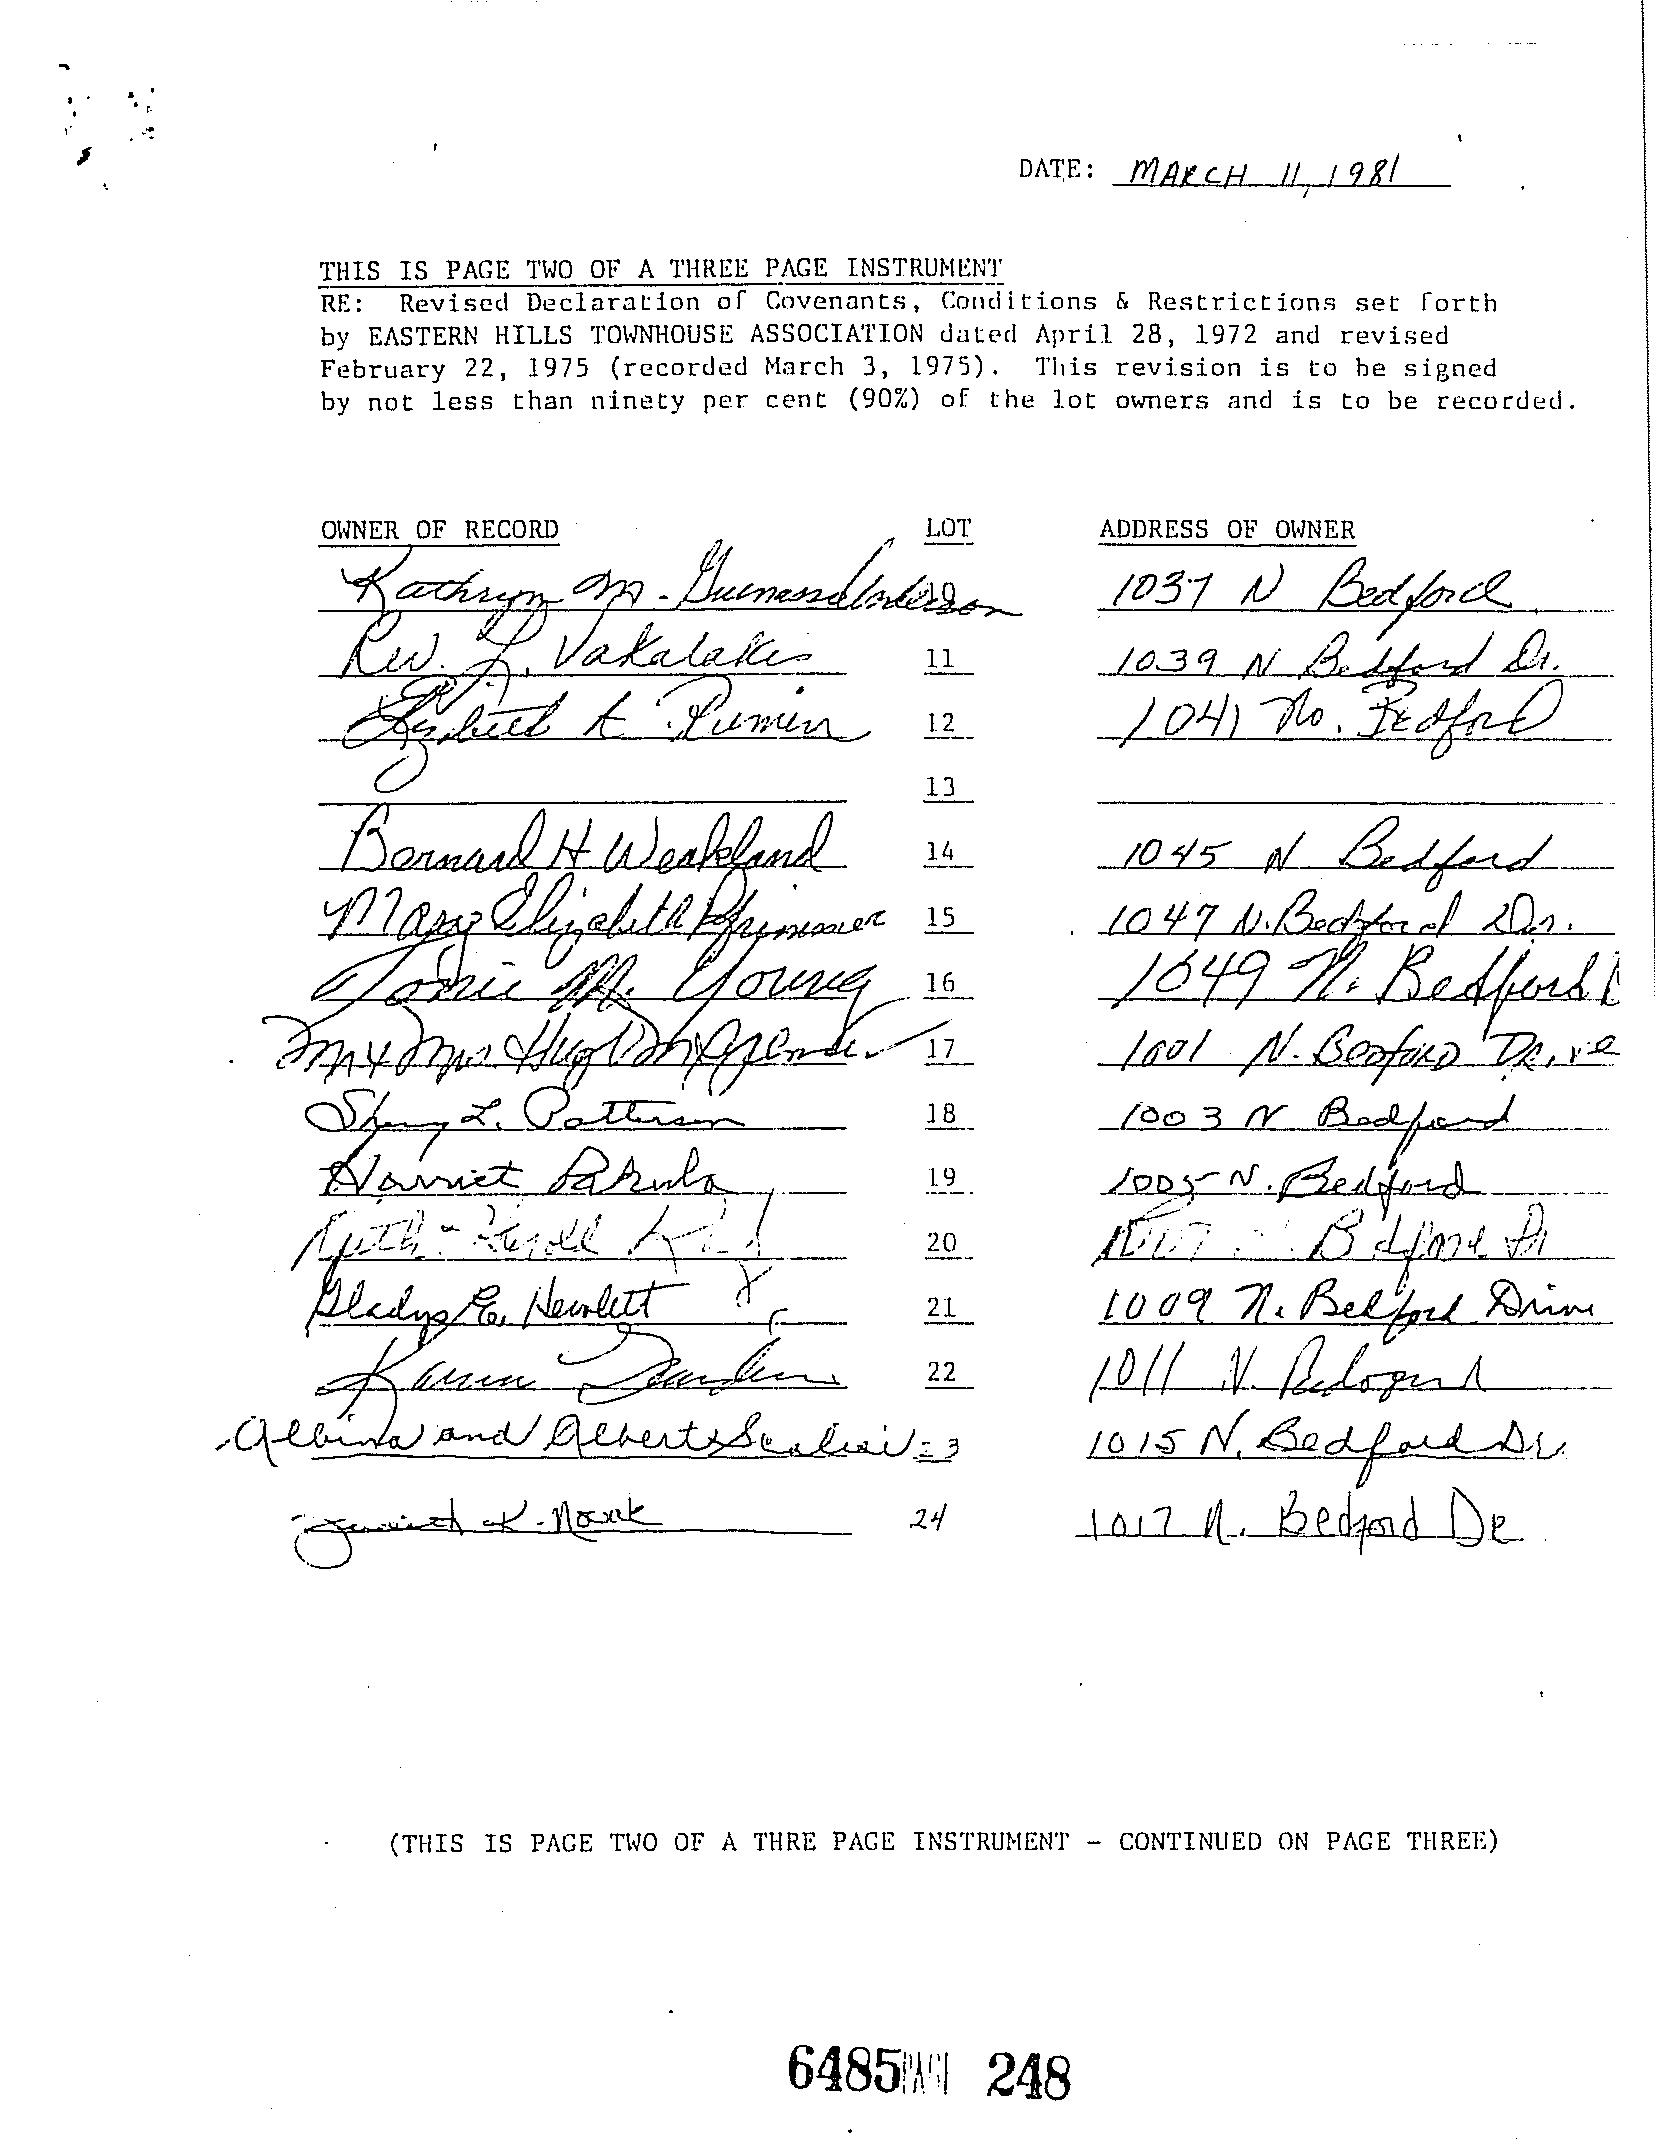 DATE: MARCH 11, 1981
THIS IS PAGE TWO OF A THREE PAGE INSTRUMENT
RE: Revised Declaration of Covenants, Conditions & Restrictions set forth
by EASTERN HILLS TOWNHOUSE ASSOCIATION dated April 28, 1972 and revised
February 22, 1975 (recorded March 3, 1975). This revision is to be signed
by not less than ninety per cent (90%) of the lot owners and is to be recorded.
OWNER OF RECORD LOT ADDRESS OF OWNER
Kathryn M. 1037 N Bedford
Rev. Vakalakis 11 1039 N Bedford Dr.
Elizabeth A. 12 1041 No. Bedford
13
Bernard H Weakland 14 1045 N Bedford
Mary Elizabeth Pfrimmer 15 1047 N. Bedford Dr.
M. Young 16 1049 N. Bedford
Mr & Mrs Hugh 17 1001 N. Bedford Drive
L. Patterson 18 1003 N Bedford
Harriet 19 1005 N. Bedford
20 1007 Bedford Dr
Gladys Hewlett 21 1009 N. Bedford Drive
Karen 22 1011 N.
Albina and Albert 23 1015 N. Bedford Dr.
K. Novak 24 1017 N. Bedford Dr
(THIS IS PAGE TWO OF A THRE PAGE INSTRUMENT - CONTINUED ON PAGE THREE)
6485 PAGE 248